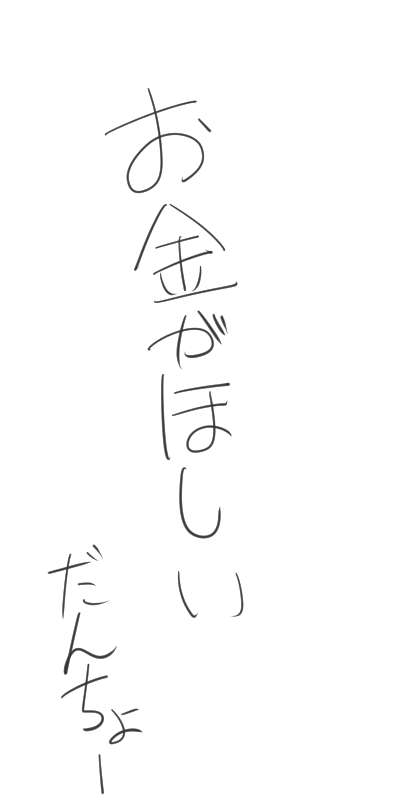 お金がほしい
だんちょー